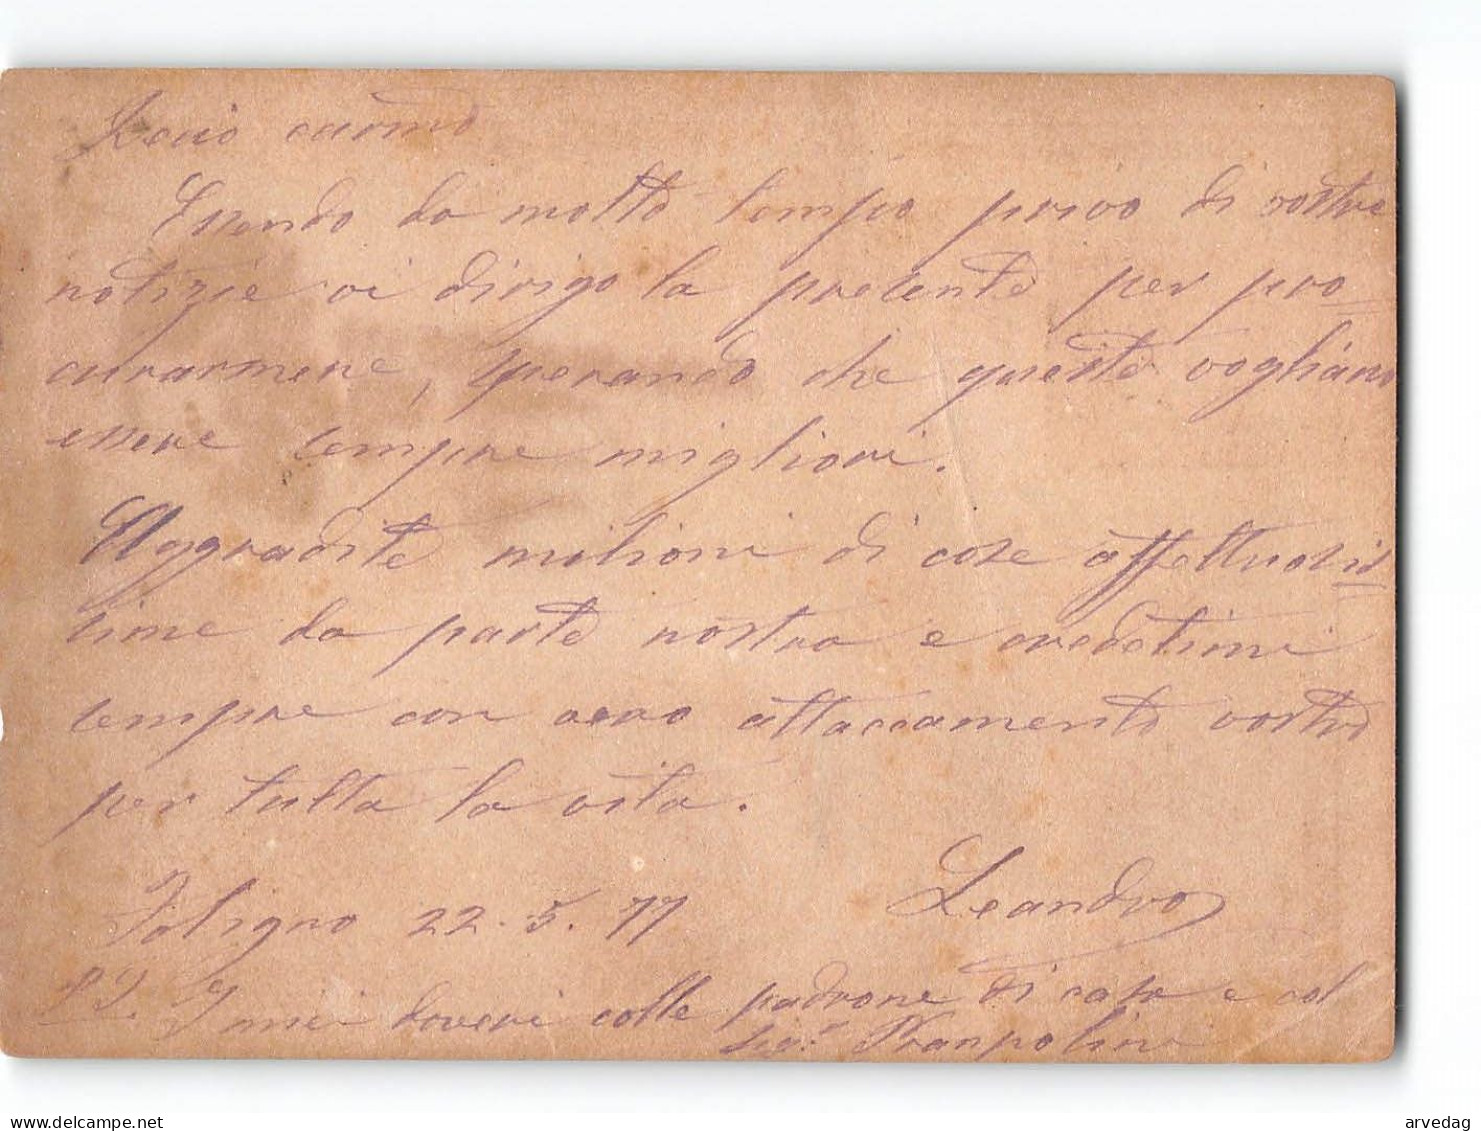 carimo
Essendo da molto tempo privo di vostre
notizie vi dirigo la presente per pro=
curarmene, sperando che queste vogliano
essere sempre migliori.
Aggradite milioni di cose affettuosis=
sime da parte nostra e credetimi
sempre con vero attaccamento vostro
per tutta la vita.
Leandro
Foligno 22. 5. 77
I miei doveri colle padrone di casa e col
Sigr
arvedag